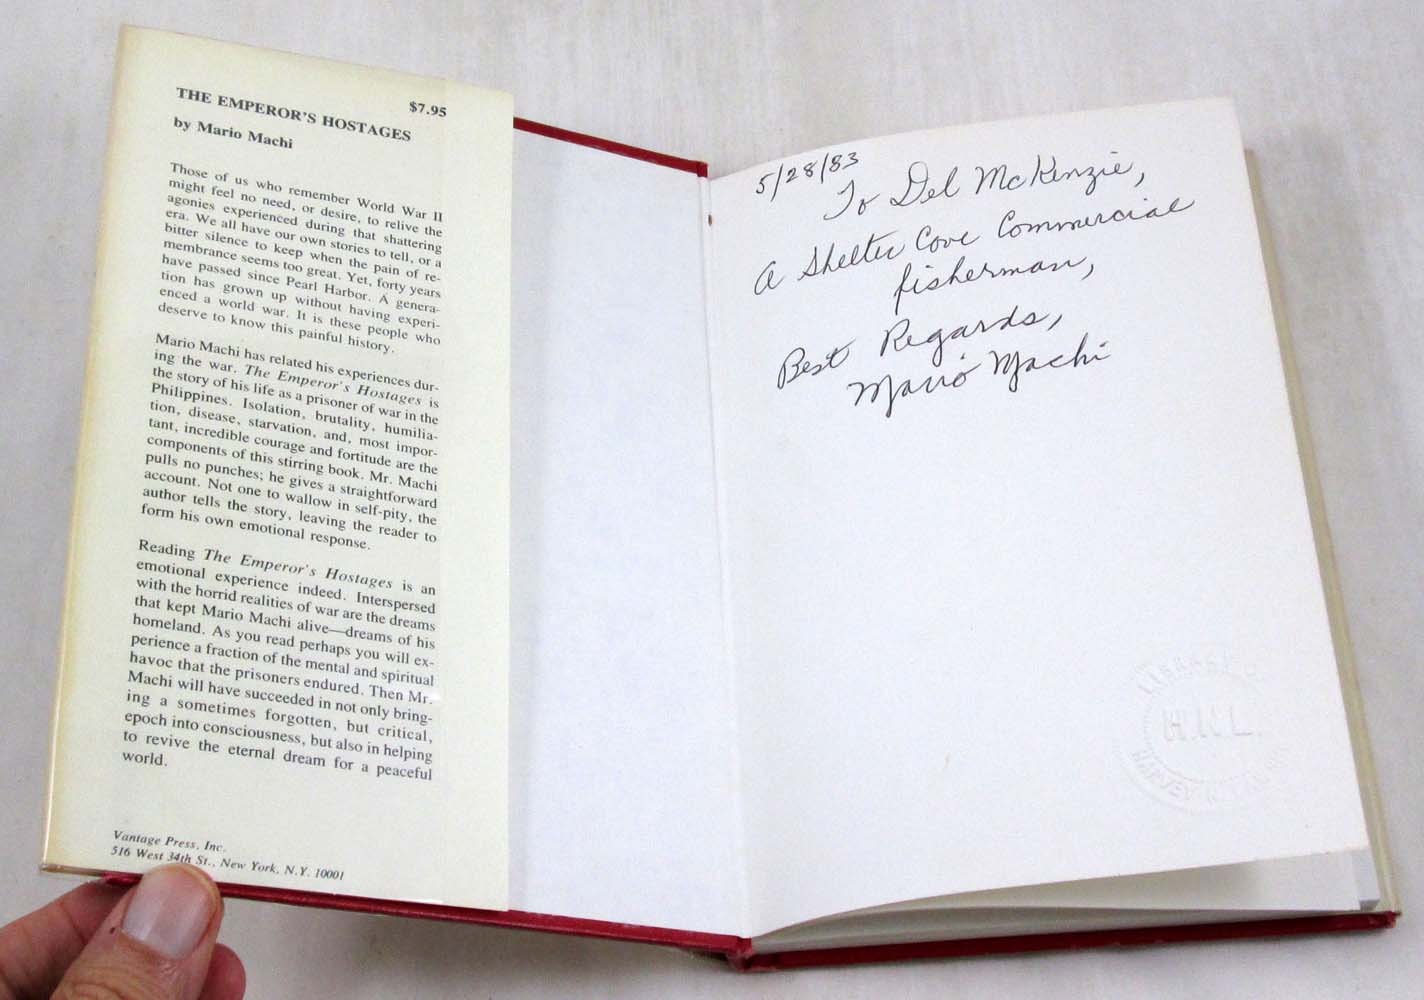 $7.95
THE EMPEROR'S HOSTAGES
by Mario Machi
Those of us who remember World War II
might feel no need, or desire, to relive the
agonies experienced during that shattering
era. We all have our own stories to tell, or a
bitter silence to keep when the pain of re-
membrance seems too great. Yet, forty years
have passed since Pearl Harbor. A genera-
tion has grown up without having experi-
enced a world war. It is these people who
deserve to know this painful history.
Mario Machi has related his experiences dur-
ing the war. The Emperor's Hostages is
the story of his life as a prisoner of war in the
Philippines. Isolation, brutality, humilia-
tion, disease, starvation, and, most impor-
tant, incredible courage and fortitude are the
components of this stirring book. Mr. Machi
pulls no punches; he gives a straightforward
account. Not one to wallow in self-pity, the
author tells the story, leaving the reader to
form his own emotional response.
Reading The Emperor's Hostages is an
emotional experience indeed. Interspersed
with the horrid realities of war are the dreams
that kept Mario Machi alive—dreams of his
homeland. As you read perhaps you will ex-
perience a fraction of the mental and spiritual
havoc that the prisoners endured. Then Mr.
Machi will have succeeded in not only bring-
ing a sometimes forgotten, but critical,
epoch into consciousness, but also in helping
to revive the eternal dream for a peaceful
world.
Vantage Press, Inc.
516 West 34th St., New York, N.Y. 10001
5/28/83
To Del McKenzie,
A Shelter Cove Commercial
fisherman,
Best Regards,
Mario Machi